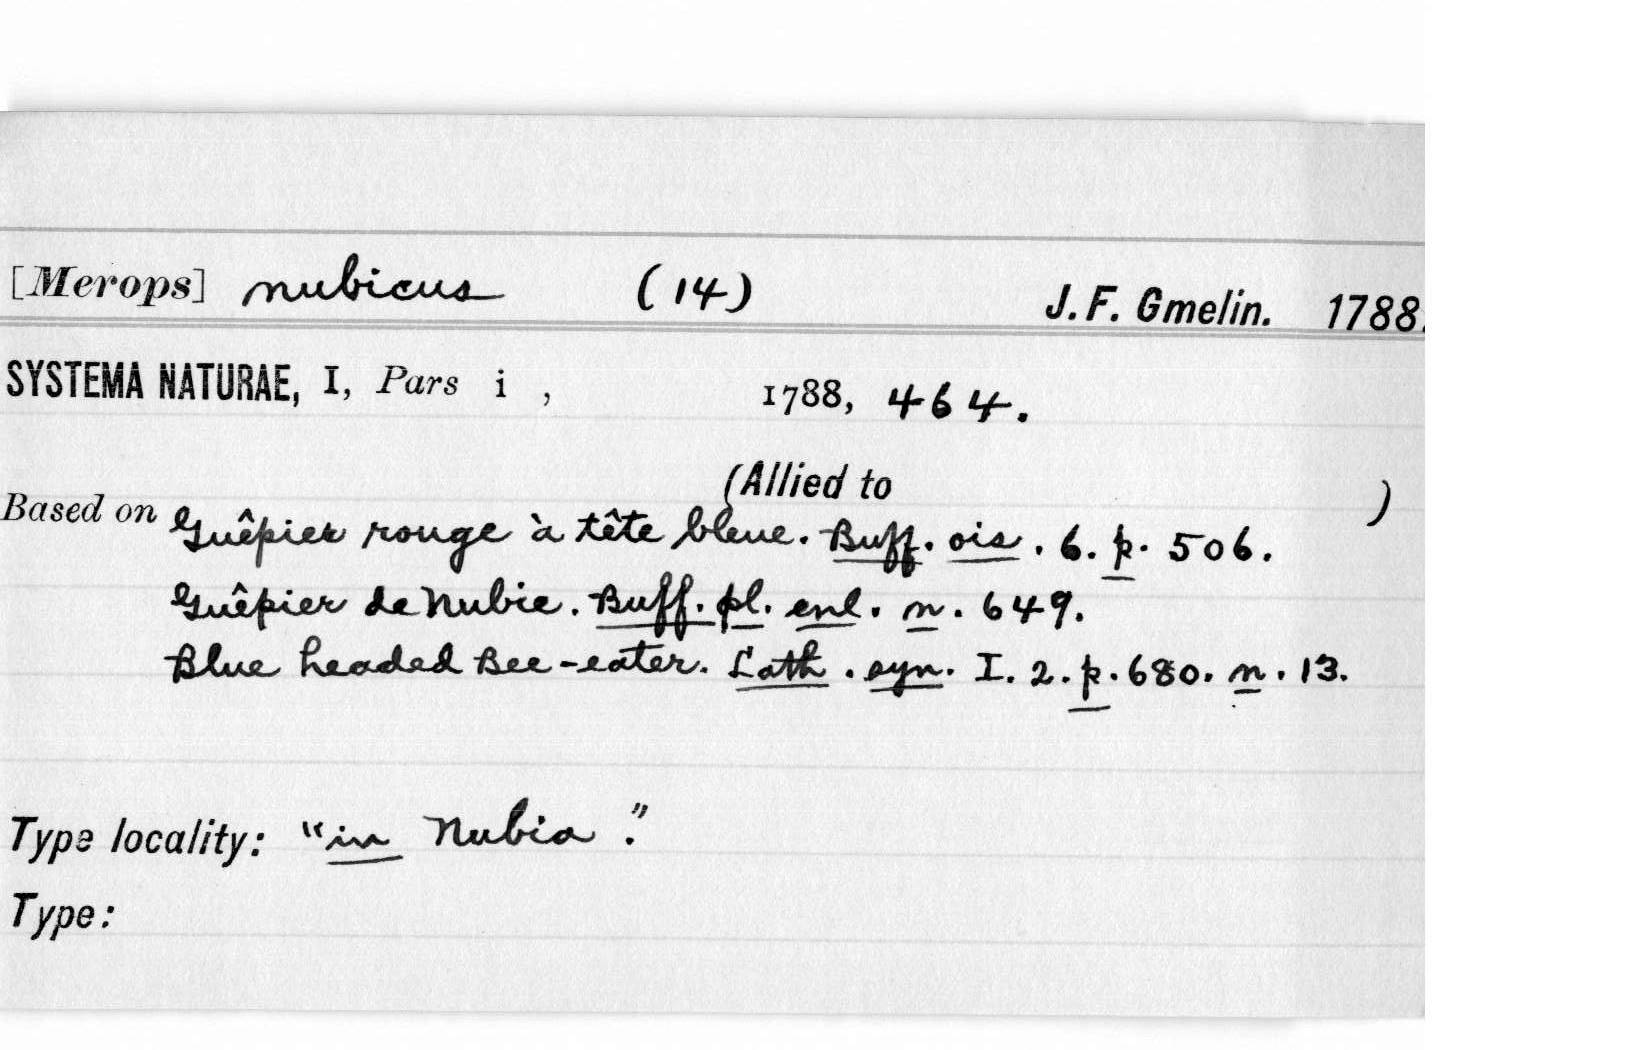 [Merops] nubicus (14) J. F. Gmelin. 1788.
SYSTEMA NATURAE, I, Pars i , 1788, 464.
(Allied to )
Based on Guêpier rouge à tête bleue. Buff. ois. 6. p. 506.
Guêpier de Nubie. Buff. pl. enl. n. 649.
Blue headed Bee-eater. Lath. syn. I. 2. p. 680. n. 13.
Type locality: "in Nubia."
Type: